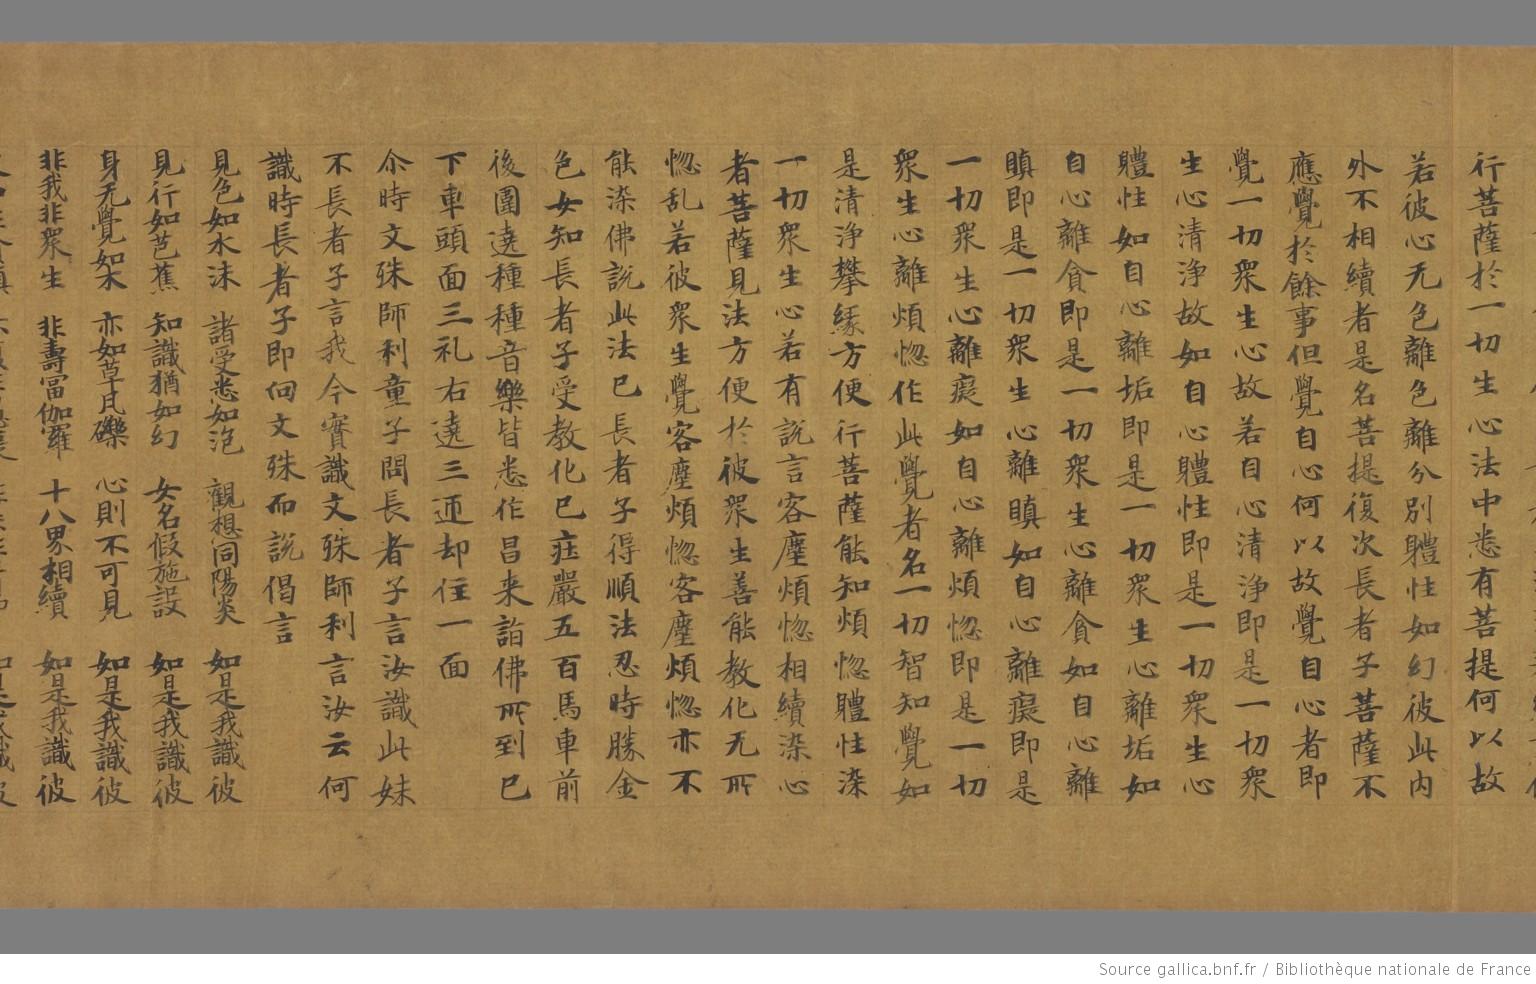 行菩薩於一切生心法中悉有菩提何以故
若彼心无色離色離分別體性如幻彼此内
外不相續者是名菩提復次長者子菩薩不
應覺於餘事但覺自心何以故覺自心者即
覺一切衆生心故若自心清淨即是一切衆
生心清淨故如自心體性即是一切衆生心
體性如自心離垢即是一切衆生心離垢如
自心離貪即是一切衆生心離貪如自心離
瞋即是一切衆生心離瞋如自心離癡即是
一切衆生心離癡如自心離煩惚即是一切
衆生心離煩惚作此覺者名一切智知覺如
是清淨攀緣方便行菩薩能知煩惚體性染
一切衆生心若有說言客塵煩惚相續染心
者菩薩見法方便於彼衆生善能教化无所
惚乱若彼衆生覺客塵煩惚客塵煩惚亦不
能染佛說此法已長者子得順法忍時勝金
色女知長者子受教化已莊嚴五百馬車前
後圍遶種種音樂皆悉作昌来詣佛所到已
下車頭面三礼右遶三迊却住一面
尒時文殊師利童子問長者子言汝識此妹
不長者子言我今實識文殊師利言汝云何
識時長者子即向文殊而說偈言
見色如水沫 諸受悉如泡 觀想同陽炎 如是我識彼
見行如芭蕉 知識猶如幻 女名假施設 如是我識彼
身无覺如木 亦如草凡礫 心則不可見 如是我識彼
非我非衆生 非壽冨伽羅 十八界相續 如是我識彼